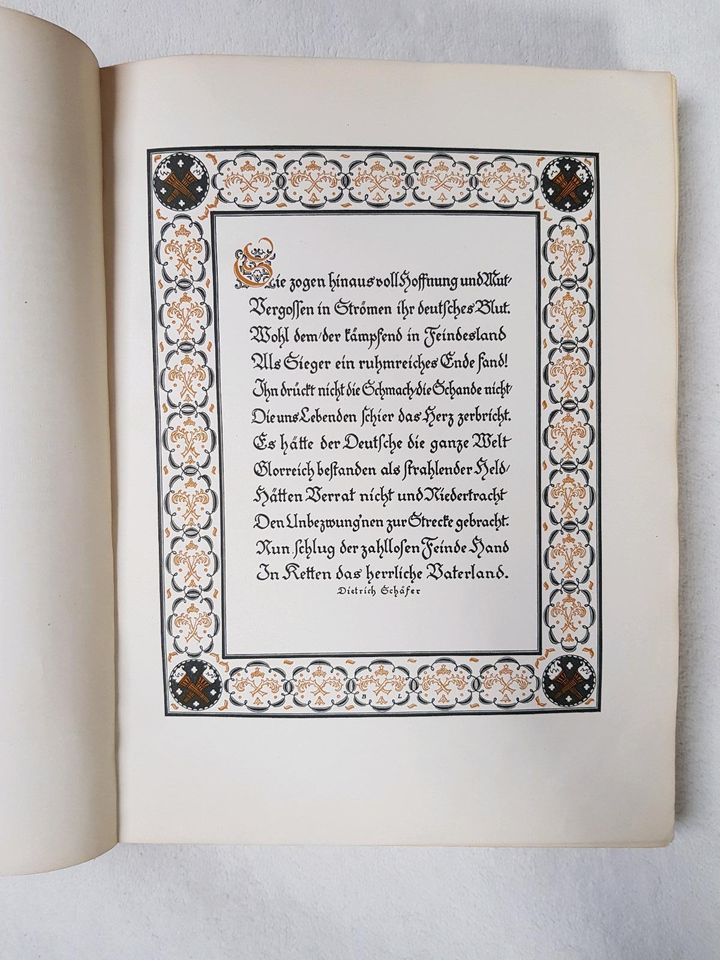 Sie zogen hinaus voll Hoffnung und Mut/
Vergossen in Strömen ihr deutsches Blut.
Wohl dem/der kämpfend in Feindesland
Als Sieger ein ruhmreiches Ende fand!
Ihn drückt nicht die Schmach/die Schande nicht/
Die uns Lebenden schier das Herz zerbricht.
Es hätte der Deutsche die ganze Welt
Glorreich bestanden als strahlender Held/
Hätten Verrat nicht und Niedertracht
Den Unbezwung'nen zur Strecke gebracht.
Nun schlug der zahllosen Feinde Hand
In Ketten das herrliche Vaterland.
Dietrich Schäfer
B L